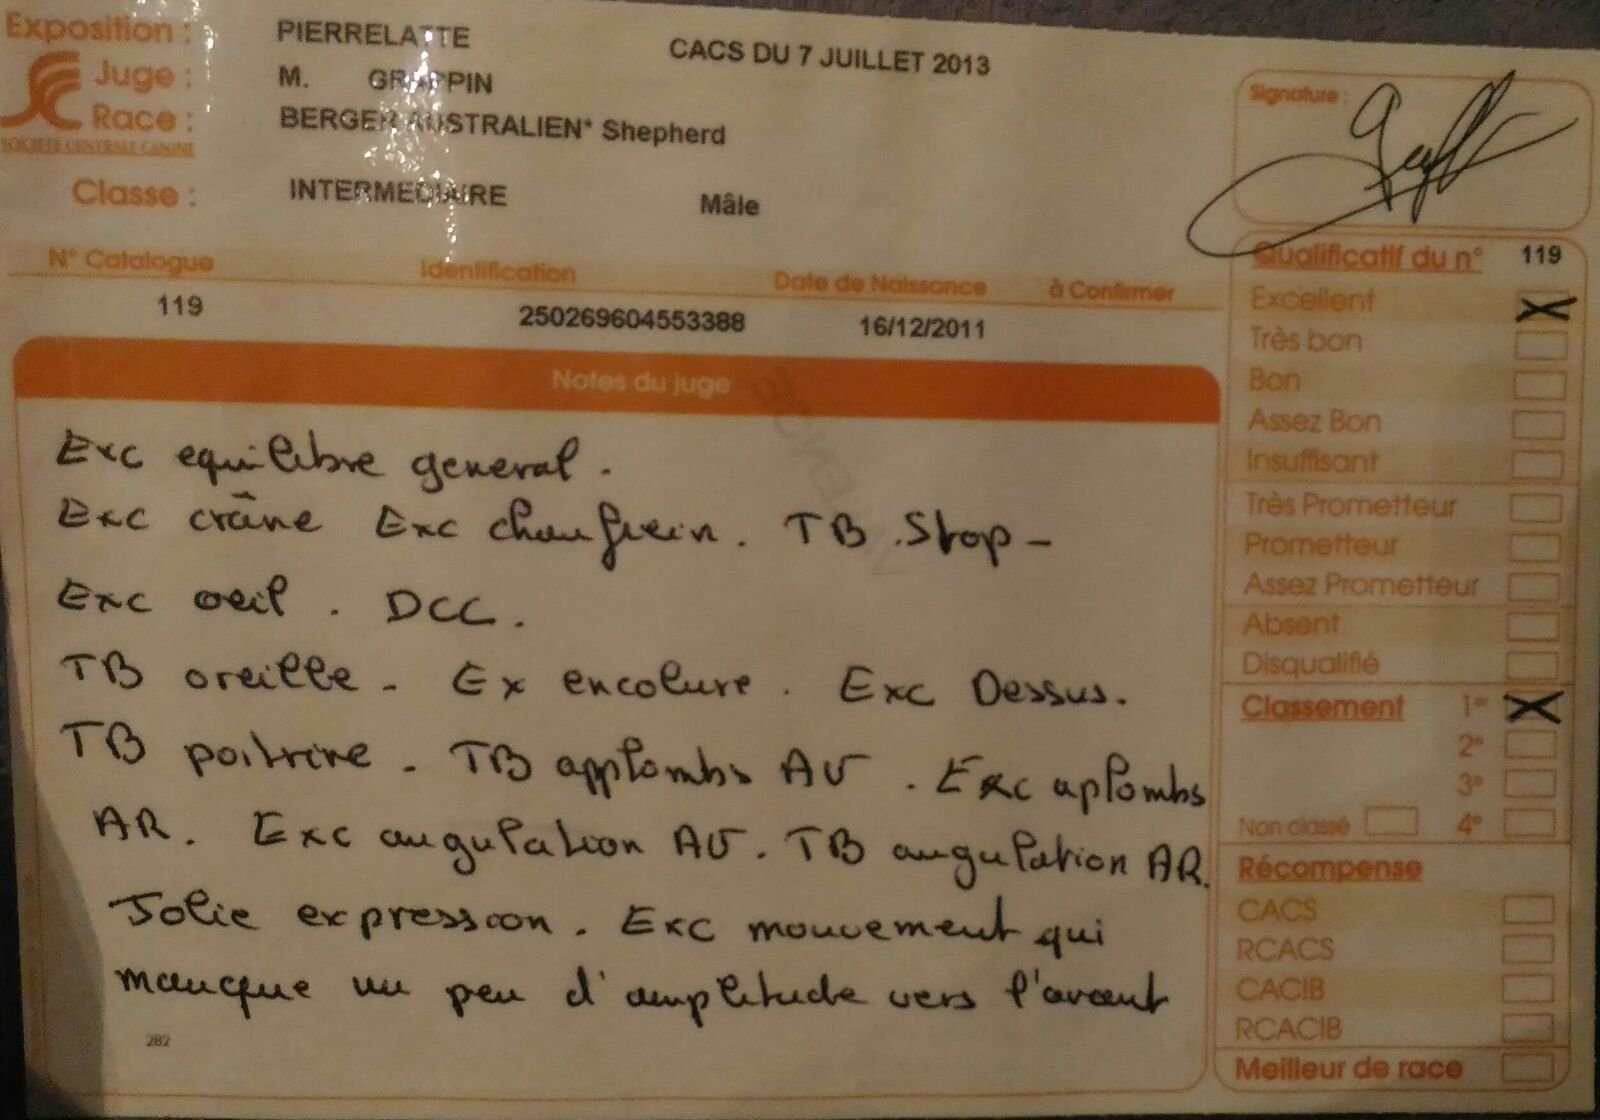 Exposition : PIERRELATTE CACS DU 7 JUILLET 2013
Juge : M. GRAPPIN
Race : BERGER AUSTRALIEN* Shepherd
SOCIÉTÉ CENTRALE CANINE
Classe : INTERMEDIAIRE Mâle
Signature :
N° Catalogue Identification Date de Naissance à Confirmer
119 250269604553388 16/12/2011
Notes du juge
Exc equilibre general.
Exc crâne Exc chanfrein. TB Stop -
Exc oeil. DCC.
TB oreille - Ex encolure. Exc Dessus.
TB poitrine - TB applombs AV. Exc aplombs
AR. Exc angulation AV. TB angulation AR.
Jolie expression. Exc mouvement qui
manque un peu d'amplitude vers l'avant
282
Qualificatif du n° 119
Excellent X
Très bon
Bon
Assez Bon
Insuffisant
Très Prometteur
Prometteur
Assez Prometteur
Absent
Disqualifié
Classement 1er X
2e
3e
Non classé 4e
Récompense
CACS
RCACS
CACIB
RCACIB
Meilleur de race